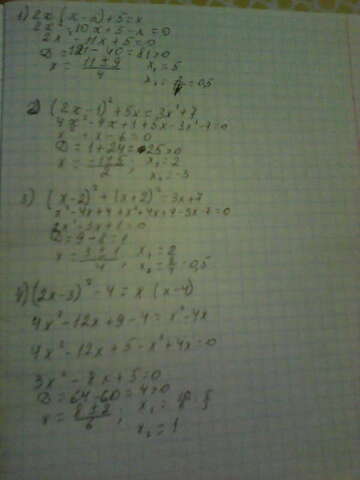 1) 2x (x-5)+5=x
2x²-10x+5-x=0
2x²-11x+5=0
D=121-40=81>0
x = (11±9)/4  x₁=5
x₂ = 2/4 = 0,5
2) (2x-1)²+5x=3x²+7
4x²-4x+1+5x-3x²-7=0
x²+x-6=0
D=1+24=25>0
x = (-1±5)/2 ; x₁=2
x₂=-3
3) (x-2)²+(x+2)²=3x+7
x²-4x+4+x²+4x+4-3x-7=0
2x²-3x+1=0
D=9-8=1
x = (3±1)/4 ; x₁=
x₂ = 2/4 = 0,5
4) (2x-3)²-4=x (x-4)
4x²-12x+9-4=x²-4x
4x²-12x+5-x²+4x=0
3x²-8x+5=0
D=64-60=4>0
x = (8±2)/6 ; x₁=
x₂=1